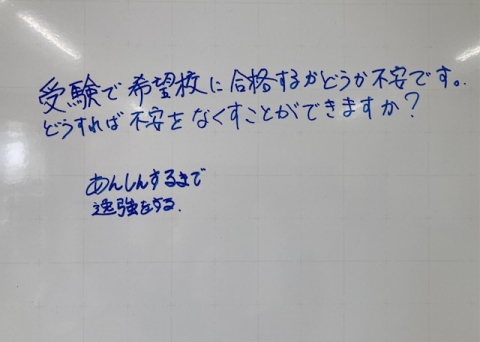 受験で希望校に合格するかどうか不安です。
どうすれば不安をなくすことができますか?
あんしんするまで
勉強をする.